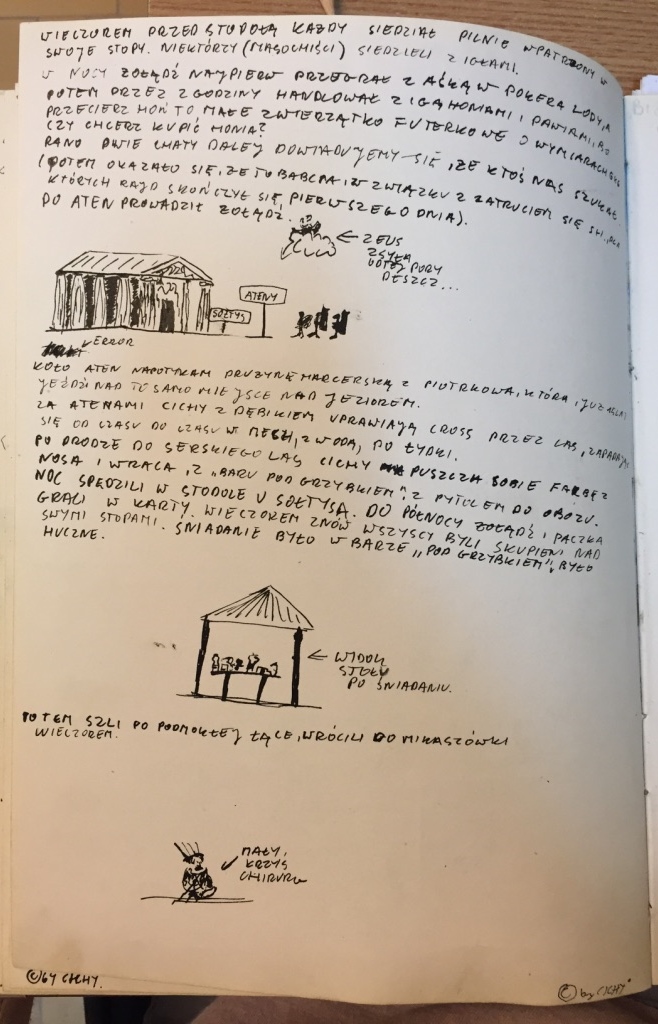 WIECZOREM PRZED STODOŁĄ KAŻDY SIEDZIAŁ PILNIE WPATRZONY W
SWOJE STOPY. NIEKTÓRZY (MASOCHIŚCI) SIEDZIELI Z IGŁAMI.
W NOCY ŻOŁĄDŹ NAJPIERW PRZEGRAŁ Z AŚKĄ W POKERA LODY, A
POTEM PRZEZ 2 GODZINY HANDLOWAŁ Z IGĄ HONIAMI I PAWIAMI, BO
PRZECIERZ HOŃ TO MAŁE ZWIERZĄTKO FUTERKOWE O WYMIARACH
CZY CHCERZ KUPIĆ HONIA?
RANO DWIE CHATY DALEJ DOWIADUJEMY SIĘ, ŻE KTOŚ NAS SZUKAŁ.
(POTEM OKAZAŁO SIĘ, ŻE TO BABCIA, W ZWIĄZKU Z ZATRUCIEM SIĘ
KTÓRYCH RAJD SKOŃCZYŁ SIĘ PIERWSZEGO DNIA).
DO ATEN PROWADZIŁ ŻOŁĄDŹ.
ZEUS
ZSYŁA
DO TEJ PORY
DESZCZ...
ATENY
SOŁTYS
ERROR
KOŁO ATEN NAPOTYKAM DRUŻYNĘ HARCERSKĄ Z PIOTRKOWA, KTÓRA, JUŻ
JEŹDZI NAD TO SAMO MIEJSCE NAD JEZIOREM.
ZA ATENAMI CICHY Z DĘBIKIEM UPRAWIAJĄ CROSS PRZEZ LAS, ZAPADAJĄC
SIĘ OD CZASU DO CZASU W MECH, Z WODĄ, PO ŁYDKI.
PO DRODZE DO SERSKIEGO LAS CICHY PUSZCZA SOBIE FARBĘ Z
NOSA I WRACA, Z „BARU POD GRZYBKIEM”, Z PYTLEM DO OBOZU.
NOC SPĘDZILI W STODOLE U SOŁTYSA. DO PÓŁNOCY ŻOŁĄDŹ I PACZKA
GRALI W KARTY. WIECZOREM ZNÓW WSZYSCY BYLI SKUPIENI NAD
SWYMI STOPAMI. ŚNIADANIE BYŁO W BARZE „POD GRZYBKIEM”, BYŁO
HUCZNE.
WIDOK
STOŁU
PO ŚNIADANIU.
POTEM SZLI PO PODMOKŁEJ ŁĄCE, WRÓCILI DO MIKASZÓWKI
WIECZOREM.
MAŁY,
KRZYŚ
CHIRURG
© BY CICHY.
© by CICHY